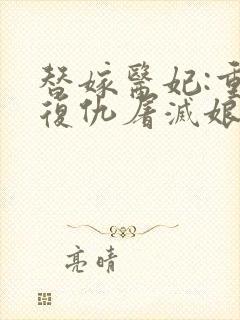 替嫁醫妃:重
復仇屠滅娘
亮晴